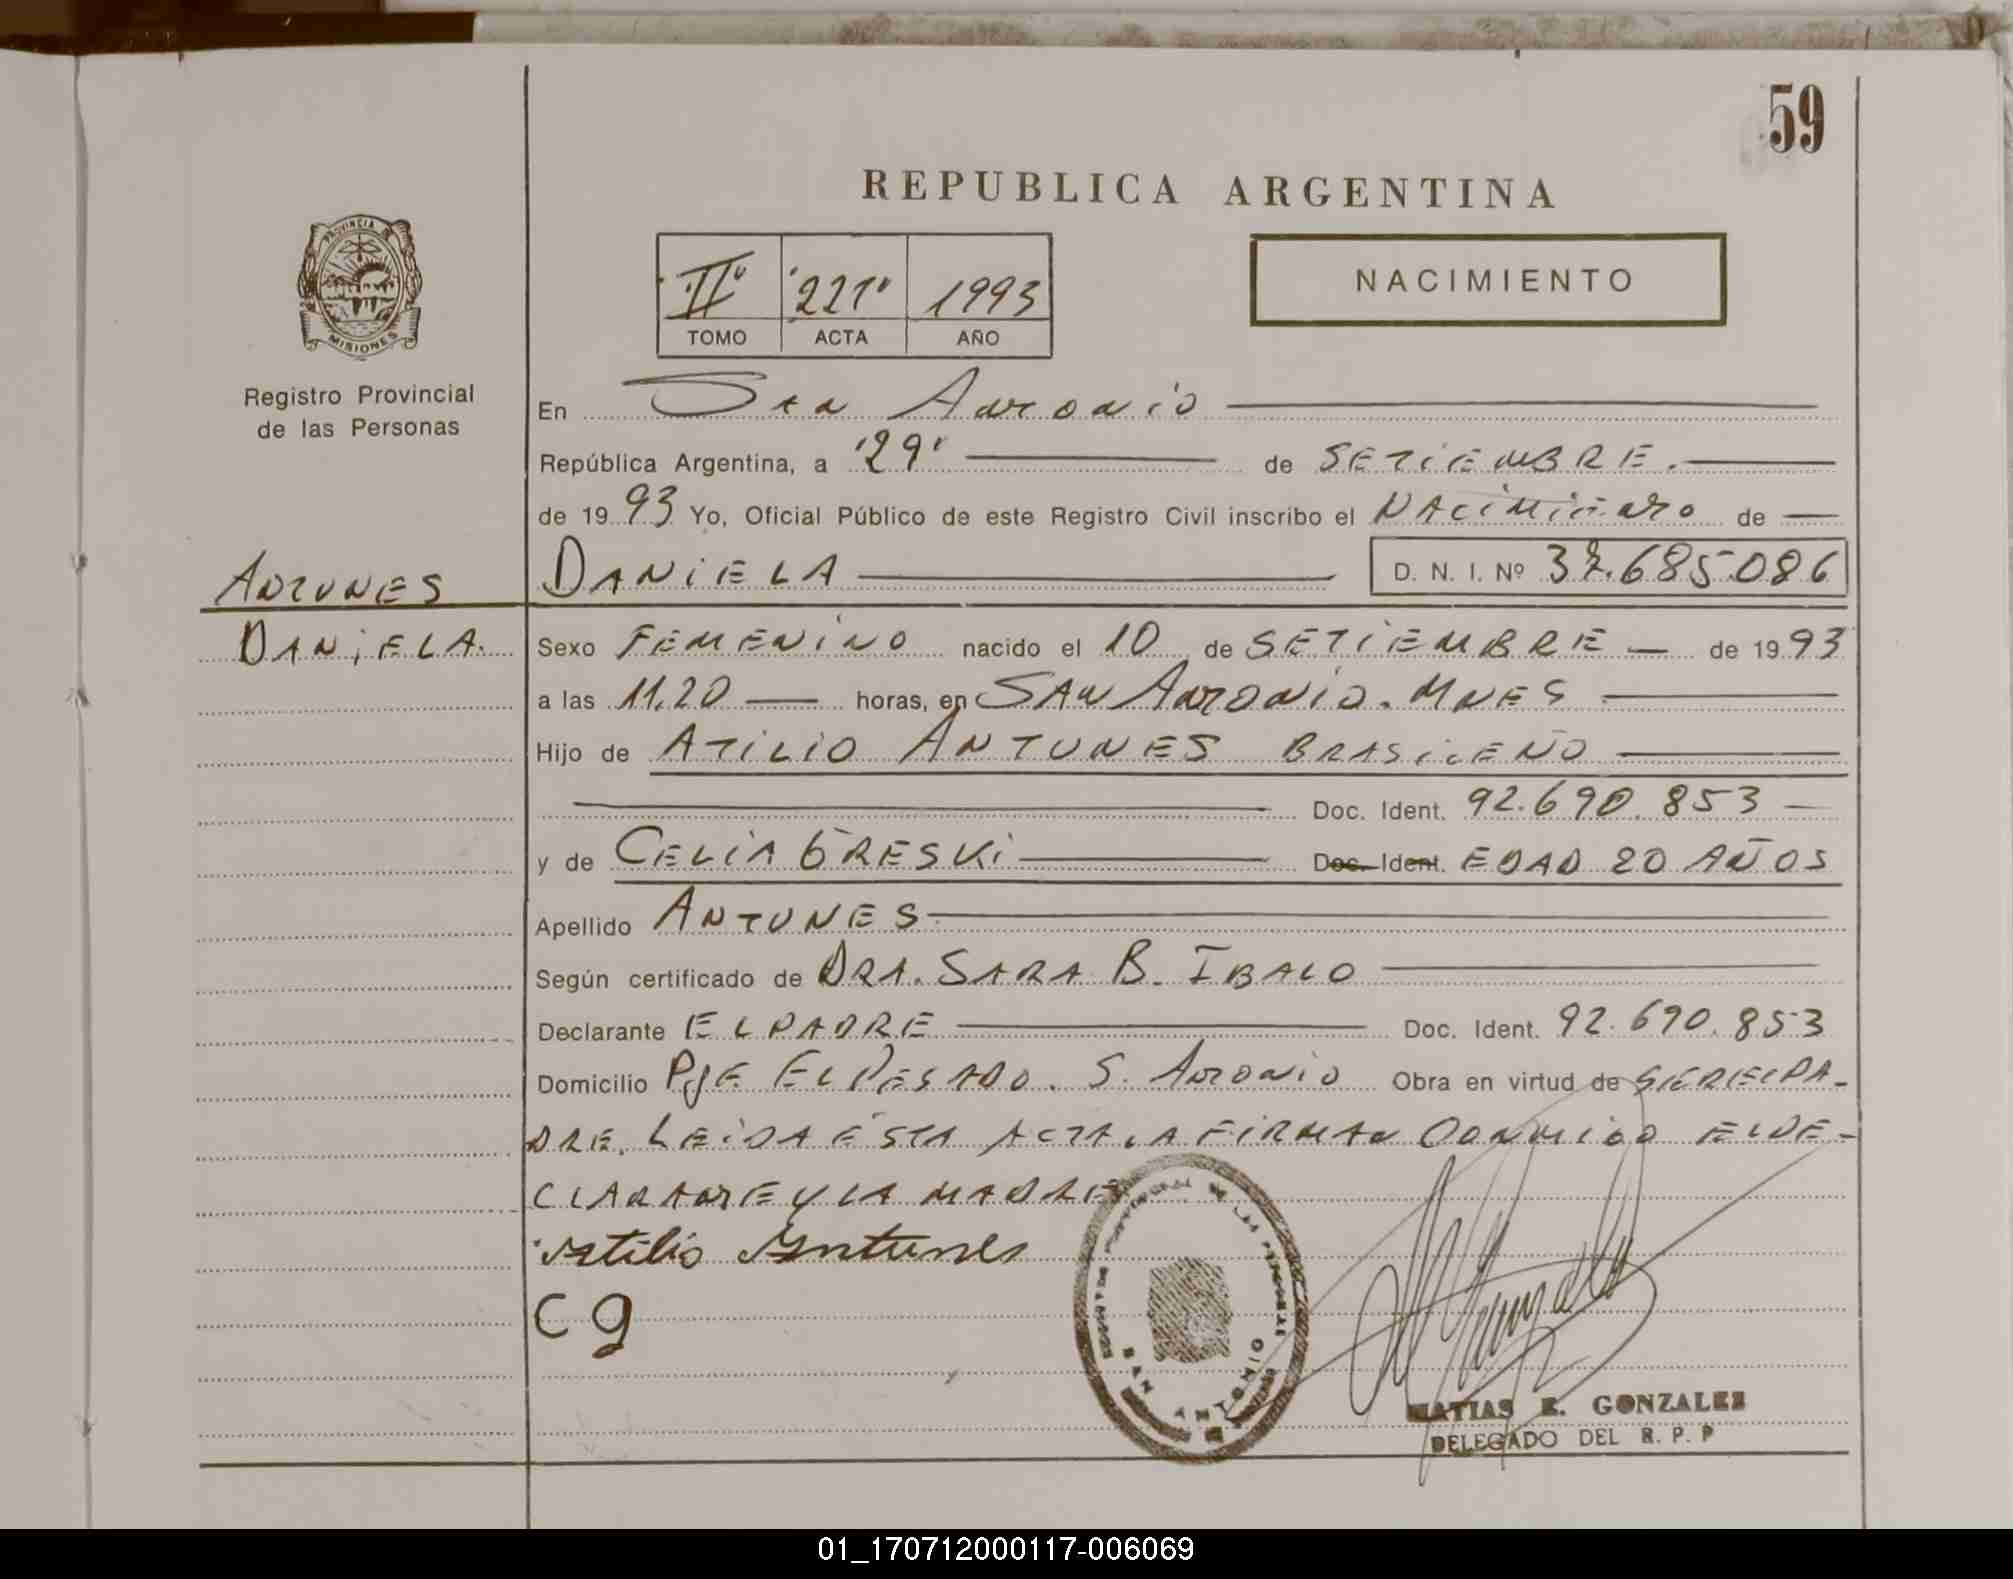 59
REPUBLICA ARGENTINA
PROVINCIA DE
MISIONES
Registro Provincial
de las Personas
IIº "221" 1993
TOMO ACTA AÑO
NACIMIENTO
En San Antonio
República Argentina, a "29" de SETIEMBRE.
de 1993 Yo, Oficial Público de este Registro Civil inscribo el NACIMIENTO de
ANTUNES DANIELA D. N. I. Nº 37.685.086
DANIELA. Sexo FEMENINO nacido el 10 de SETIEMBRE de 1993
a las 11,20 horas, en SAN ANTONIO. MNES
Hijo de ATILIO ANTUNES BRASILEÑO
Doc. Ident. 92.690.853
y de CELIA GRESKI Doc. Ident. EDAD 20 AÑOS
Apellido ANTUNES
Según certificado de DRA. SARA B. IBALO
Declarante EL PADRE Doc. Ident. 92.690.853
Domicilio PJE. EL PESADO. S. ANTONIO Obra en virtud de SER EL PA-
DRE. LEIDA ESTA ACTA, LA FIRMAN CONMIGO EL DE-
CLARANTE Y LA MADRE
Atilio Antunes
C g
SAN ANTONIO
MATIAS E. GONZALEZ
DELEGADO DEL R. P. P
01_170712000117-006069